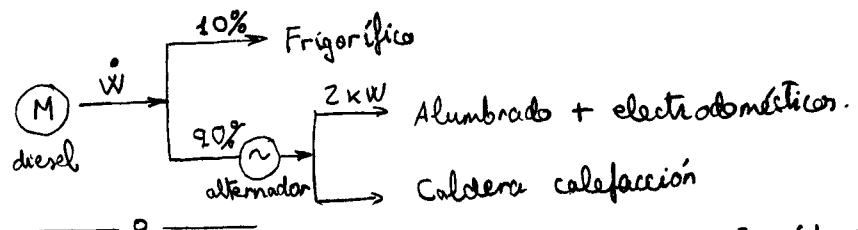 10%
Frigorífico
Ẇ
M
diesel
90%
~
alternador
2 kW
Alumbrado + electrodomésticos.
Caldera calefacción